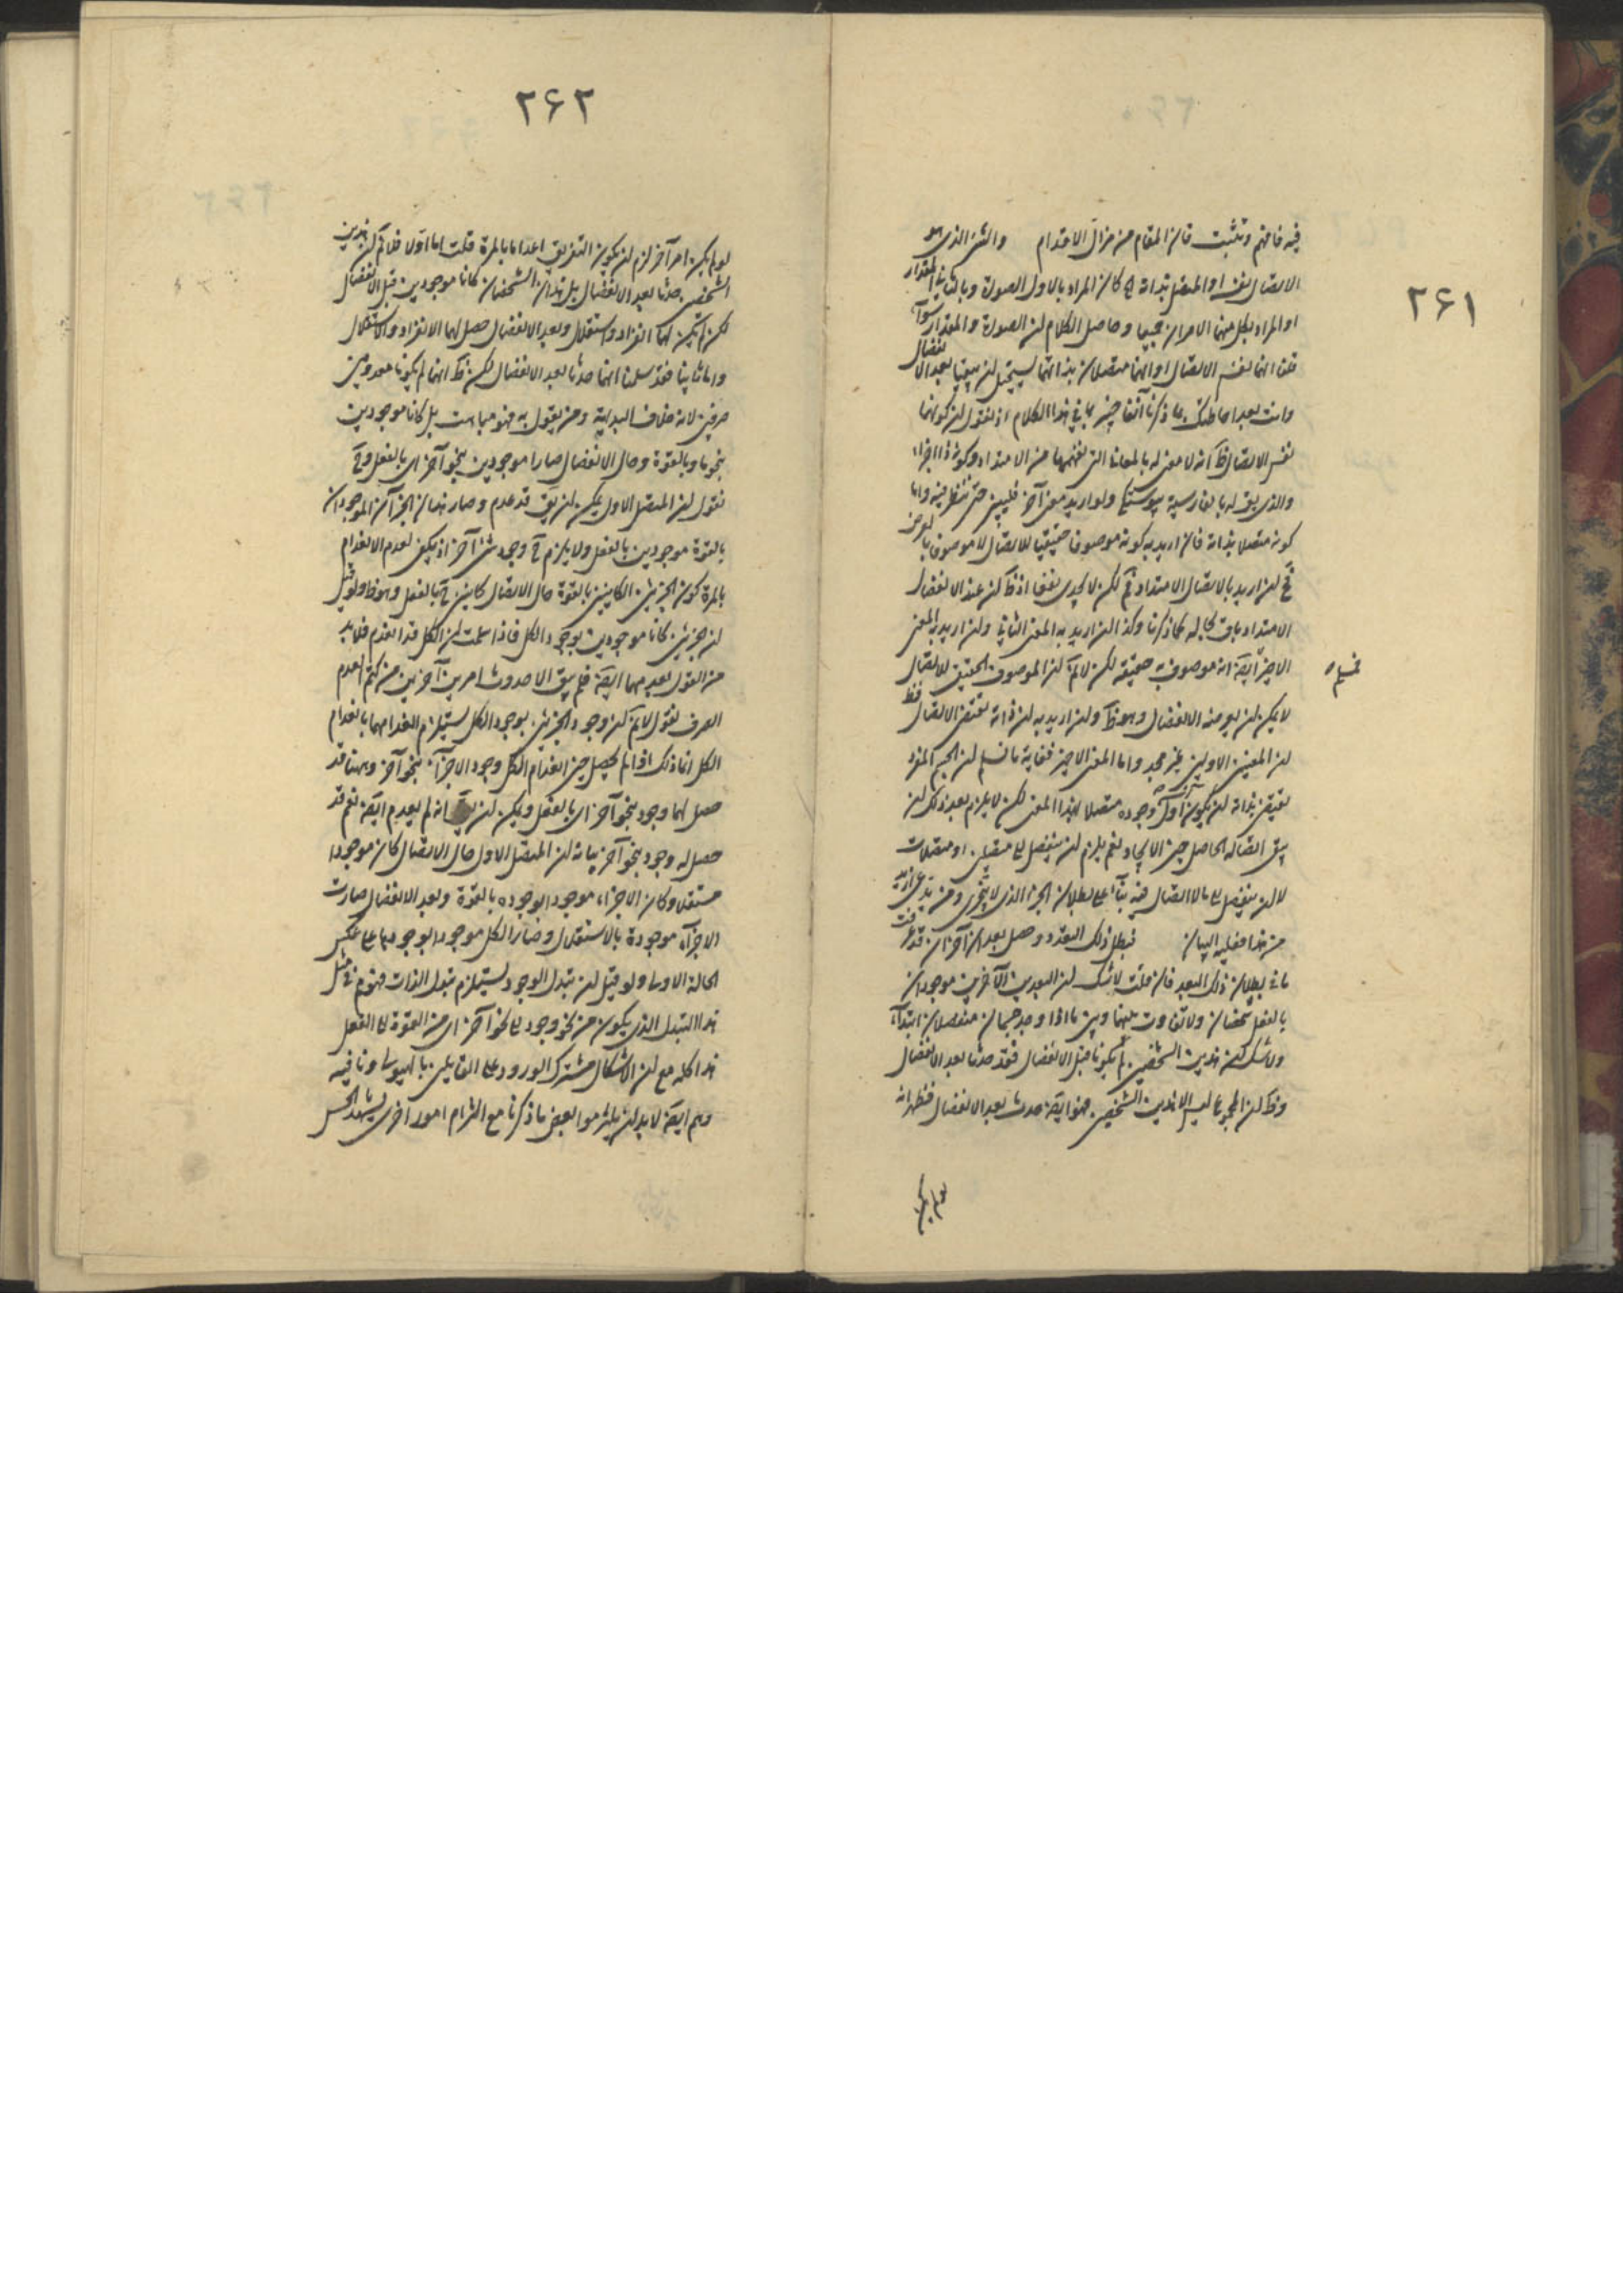 ۲۶۱
فيه فافهم وتثبت فان المقام من مزال الاقدام والشئ الذى هو
الاتصال نفسه او المتصل بذاته كان المراد بالاول الصورة وبالثانى المقدار
او المراد بكل منهما الامران جميعا وحاصل الكلام ان الصورة والمقدار سواء
قلنا انهما نفس الاتصال او انهما متصلان بذاتهما يستحيل ان يبقيا بعد الانفصال
وانت بعد احاطتك بما ذكرنا آنفا خبير بما فى هذا الكلام اذ نقول ان كونهما
نفس الاتصال ظ انه لا معنى له بالمعانى التى نفهمها من الامتداد وكونه ذا اجزاء
والذى يق له بالفارسية پيوستگى ولو اريد معنى آخر فليبين حتى ننظر فيه واما
كونه متصلا بذاته فان اريد به كونه موصوفا حقيقيا للاتصال لا موصوف بالعرض
فح ان اريد بالاتصال الامتداد فم لكن لا يجدى نفعا اذ ظ ان عند الانفصال
الامتداد باق بحاله كما ذكرنا وكذا ان اريد به المعنى الثانى وان اريد به المعنى
الاخير ايضا انه موصوف به حقيقة لكن لانم ان الموصوف الحقيقى للاتصال
لا يمكن ان يعرضه الانفصال وهو ظ وان اريد به ان ذاته تقتضى الاتصال فظ
ان المعنيين الاولين غير مجد واما المعنى الاخير فغاية ما نسلم ان الجسم المفرد
يقتضى بذاته ان يكون اول وجوده متصلا بهذا المعنى لكن لا يلزم بعد ذلك ان
يبق اتصاله الحاصل حين الايجاد نعم يلزم ان ينفصل الى متصلين او متصلات
لا ان ينفصل الى ما لا اتصال فيه بناء على بطلان الجزء الذى لا يتجزى ومن يدعى ازيد
من هذا فعليه البيان فبطل ذلك البعد وحصل بعدان آخران قد عرفت
ما فى بطلان ذلك البعد فان قلت لا شك ان البعدين الآخرين موجودان
بالفعل شخصان ولا تفاوت بينهما وبين ما اذا وجد جسمان منفصلان ابتداء
ولا شك ان هذين الشخصين لم يكونا قبل الانفصال فقد حدثا بعد الانفصال
وظ ان المجموع ليس الا هذين الشخصين فهو ايضا حدث بعد الانفصال فظهر انه
لو لم يكن
۲۶۲
لو لم يكن امر آخر لزم ان يكون التفريق اعداما بالمرة قلت اما اولا فلانم ان هذين
الشخصين حدثا بعد الانفصال بل هذان الشخصان كانا موجودين قبل الانفصال
لكن لم يكن لهما انفراد واستقلال وبعد الانفصال حصل لهما الانفراد والاستقلال
واما ثانيا فقد سلمنا انهما حدثا بعد الانفصال لكن ظ انهما لم يكونا معدومين
صرفين لانه خلاف البداهة ومن يقول به فهو مباهت بل كانا موجودين
بنحو ما وبالقوة وحال الانفصال صارا موجودين بنحو آخر اى بالفعل وح
نقول ان المتصل الاول يمكن ان يق قد عدم وصار هذان الجزآن الموجودان
بالقوة موجودين بالفعل ولا يلزم ح وجود شئ آخر اذ يكفى لعدم الانعدام
بالمرة كون الجزئين الكاينين بالقوة حال الاتصال كاينين ح بالفعل وهو ظ ولو قيل
ان جزئين كانا موجودين بوجود الكل فاذا سلمت ان الكل قد انعدم فلا بد
من القول بعدمهما ايضا فلم يبق الا حدوث امرين آخرين من كتم العدم
الصرف نقول لانم ان وجود الجزئين بوجود الكل يستلزم انعدامهما بانعدام
الكل انما ذلك اذا لم يحصل حين انعدام الكل وجود الاجزاء بنحو آخر وههنا قد
حصل لهما وجود بنحو آخر اى بالفعل ويمكن ان يق انه لم يعدم ايضا نعم قد
حصل له وجود بنحو آخر بيانه ان المتصل الاول حال الاتصال كان موجودا
مستقلا وكان الاجزاء موجودا بوجوده بالقوة وبعد الانفصال صارت
الاجزاء موجودة بالاستقلال وصار الكل موجودا بوجودها على عكس
الحالة الاولى ولو قيل ان تبدل الوجود يستلزم تبدل الذات فهو م فى مثل
هذا التبدل الذى يكون من نحو وجود الى نحو آخر اى من القوة الى الفعل
هذا كله مع ان الاشكال مشترك الورود على القايلين بالهيولى ونافيه
وهم ايضا لا بد ان يلتزموا بعض ما ذكرنا مع التزام امور آخرى يشهد الحس